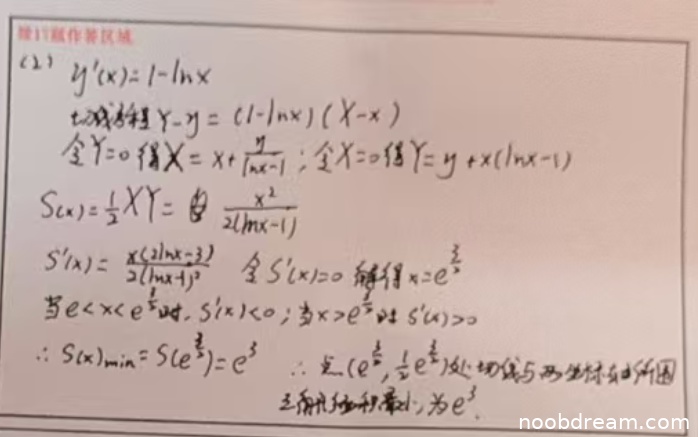 续17题作答区域
(2) y'(x)=1-lnx
切线方程 Y-y=(1-lnx)(X-x)
令Y=0得X=x+\frac{y}{lnx-1};令X=0得Y=y+x(lnx-1)
S(x)=\frac{1}{2}XY=\frac{x^2}{2(lnx-1)}
S'(x)=\frac{x(2lnx-3)}{2(lnx-1)^2} 令S'(x)=0 解得x=e^{\frac{3}{2}}
当e<x<e^{\frac{3}{2}}时,S'(x)<0;当x>e^{\frac{3}{2}}时S'(x)>0
∴S(x)min=S(e^{\frac{3}{2}})=e^3 ∴点(e^{\frac{3}{2}},\frac{1}{2}e^{\frac{3}{2}})处切线与两坐标轴所围
三角形面积最小,为e^3.
noobdream.com